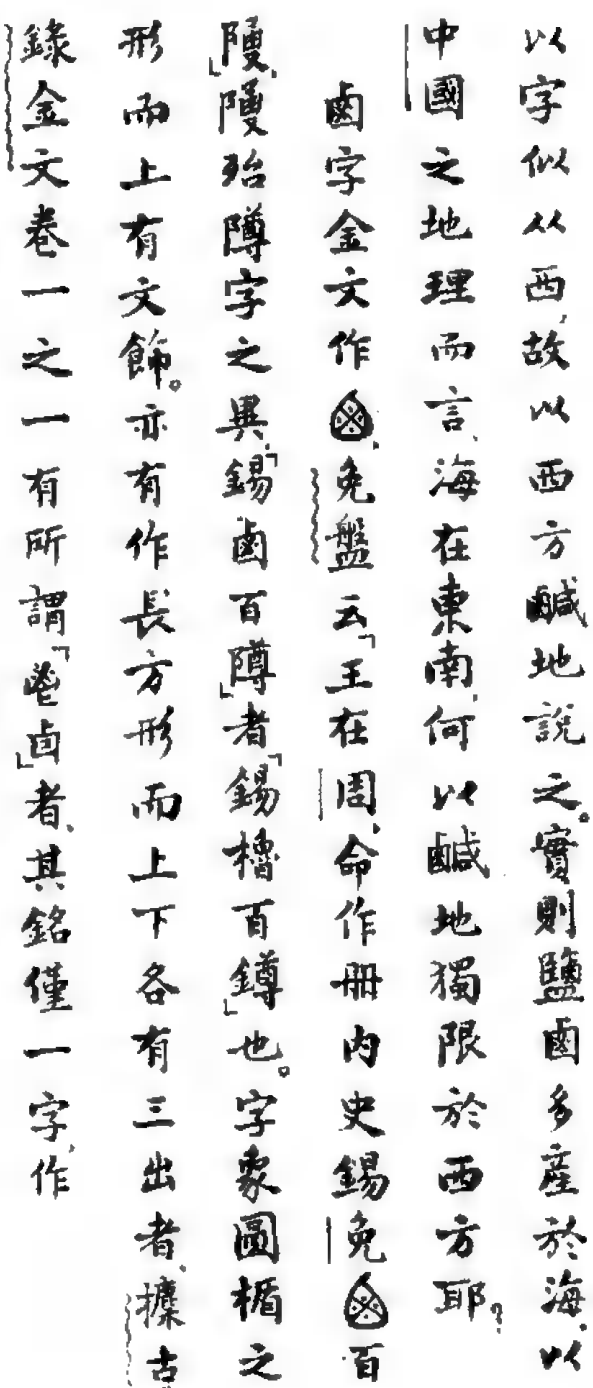 以字似从西，故以西方鹹地說之。實則鹽鹵多產於海，以
中國之地理而言，海在東南，何以鹹地獨限於西方耶？
鹵字金文作，免盤云「王在周，命作冊內史錫免百
」殆隣字之異，「錫鹵百隣」者「錫櫓百鐏」也。字象圓楯之
形而上有文飾。亦有作長方形而上下各有三出者，攈古
錄金文卷一之一有所謂「鹵」者，其銘僅一字，作